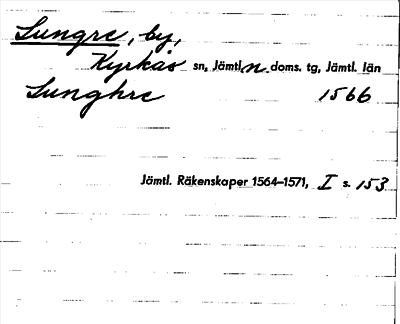 Sungre, by,
Kyrkås sn, Jämtl. n. doms. tg, Jämtl. län
Sunghre 1566
Jämtl. Räkenskaper 1564–1571, I s. 153